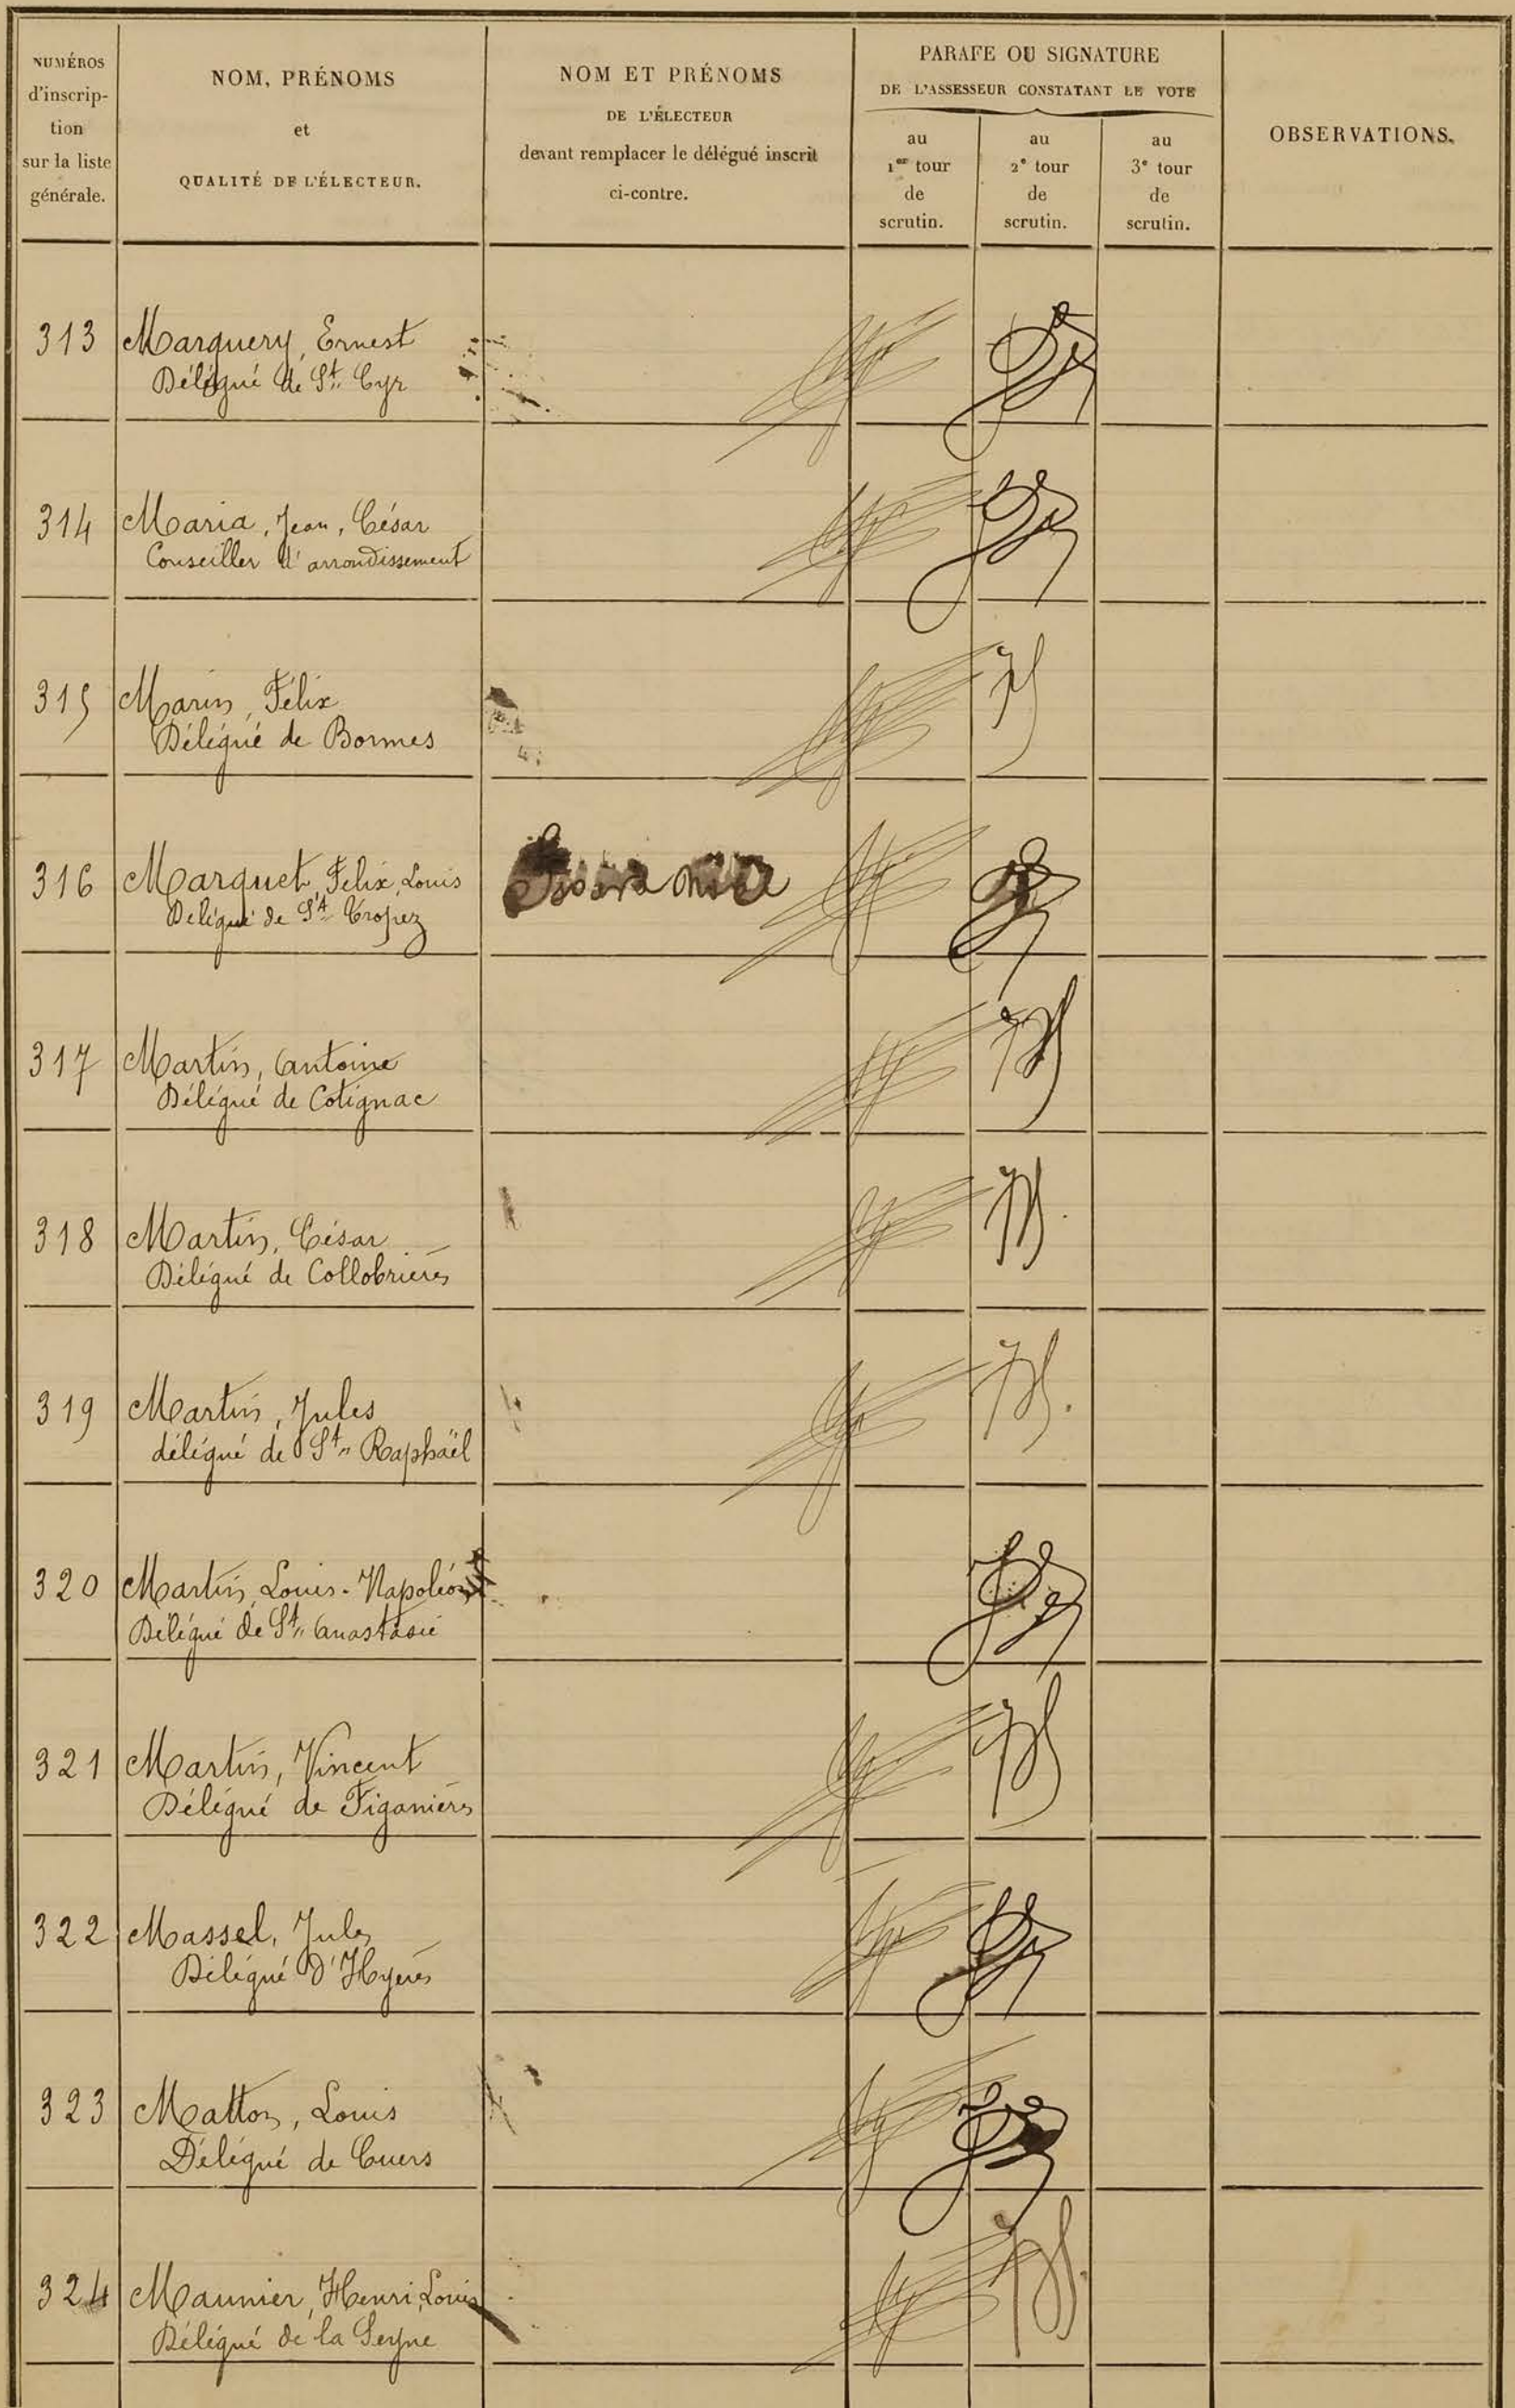 NUMÉROS
d'inscrip-
tion
sur la liste
générale.
NOM, PRÉNOMS
et
QUALITÉ DE L'ÉLECTEUR.
NOM ET PRÉNOMS
DE L'ÉLECTEUR
devant remplacer le délégué inscrit
ci-contre.
PARAFE OU SIGNATURE
DE L'ASSESSEUR CONSTATANT LE VOTE
au
1er tour
de
scrutin.
au
2e tour
de
scrutin.
au
3e tour
de
scrutin.
OBSERVATIONS.
313 Marquery, Ernest
Délégué de St. Cyr
314 Maria, Jean, César
Conseiller d'arrondissement
315 Marin, Félix
Délégué de Bormes
316 Marquet, Felix, Louis
Délégué de St Tropez
317 Martin, Antoine
Délégué de Cotignac
318 Martin, César
Délégué de Collobrières
319 Martin, Jules
délégué de St. Raphaël
320 Martin, Louis-Napoléon
Délégué de Ste Anastasie
321 Martin, Vincent
Délégué de Figanières
322 Massel, Jules
Délégué d'Hyères
323 Matton, Louis
Délégué de Cuers
324 Maunier, Henri, Louis
Délégué de la Seyne